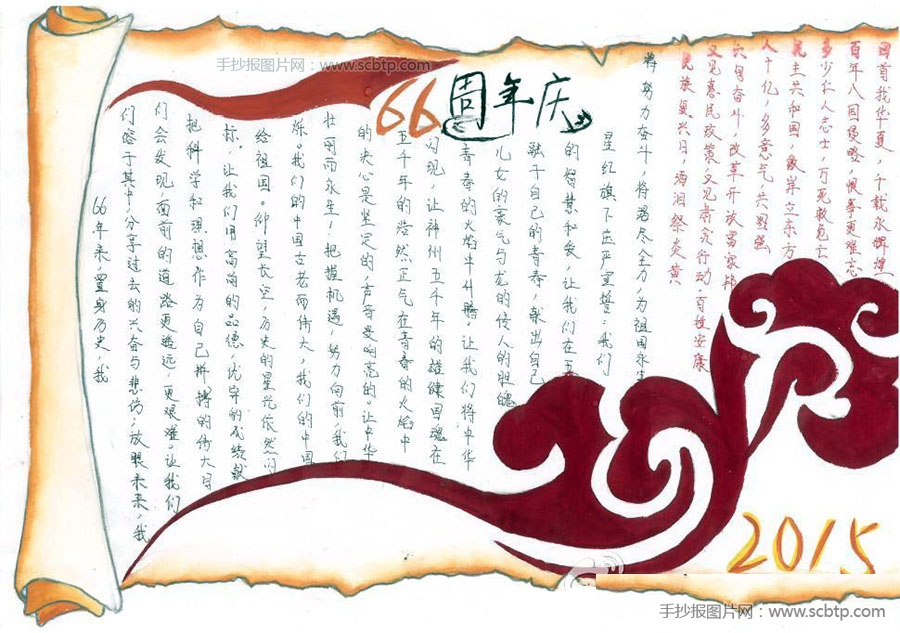 手抄报图片网：www.scbtp.com
66周年庆
66年来,置身历史,我
们溶于其中,分享过去的兴奋与悲伤;放眼未来,我
们会发现面前的道路更遥远,更艰难。让我们
把科学和理想作为自己拼搏的伟大目
标,让我们用高尚的品德,优异的成绩献
给祖国。仰望长空,历史的星光依然闪
烁。我们的中国古老而伟大,我们的中国
壮丽而永生!把握机遇,努力向前,我们
的决心是坚定的,声音是响亮的。让中华
五千年的浩然正气在青春的火焰中
闪现,让神州五千年的雄健国魂在
青春的火焰中升腾,让我们将中华
儿女的豪气与龙的传人的胆魄
融于自己的青春,献出自己
的智慧和爱,让我们在五
星红旗下庄严宣誓:我们
将努力奋斗,将竭尽全力,为祖国永生
回首我华夏,千载永辉煌
百年八国侵凌,恨事更难忘
多少仁人志士,万死救危亡
民主共和国,巍岸立东方
人十亿,多意气,共图强
六旬奋斗,改革开放富家邦
又见惠民政策,又见肃贪行动,百姓安康
民族复兴日,洒泪祭炎黄
2015
手抄报图片网：www.scbtp.com